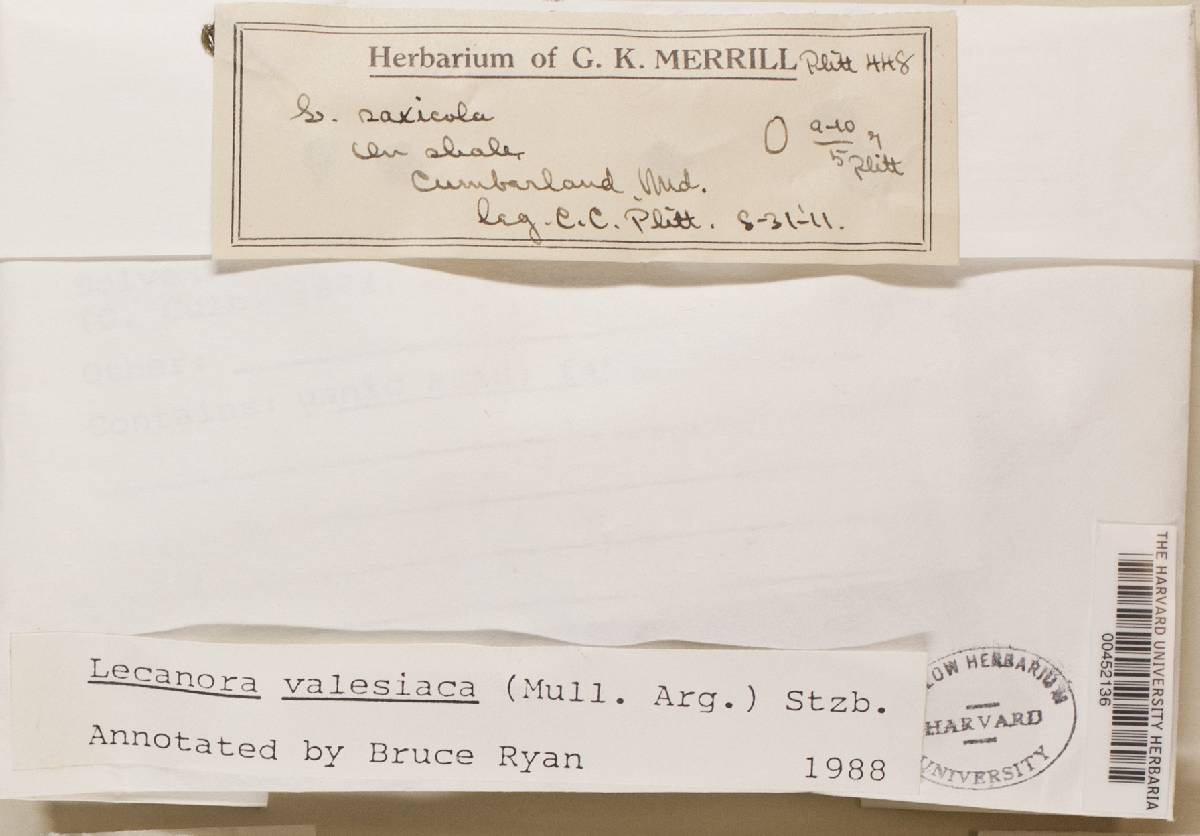 Herbarium of G. K. MERRILL Plitt 448
L. saxicola
on shale
Cumberland, Md.
leg. C. C. Plitt. 8-31-11.
9-10
5
Plitt
Contains:
Lecanora valesiaca (Mull. Arg.) Stzb.
Annotated by Bruce Ryan 1988
LOW HERBARIUM
HARVARD
UNIVERSITY
THE HARVARD UNIVERSITY HERBARIA
00452136